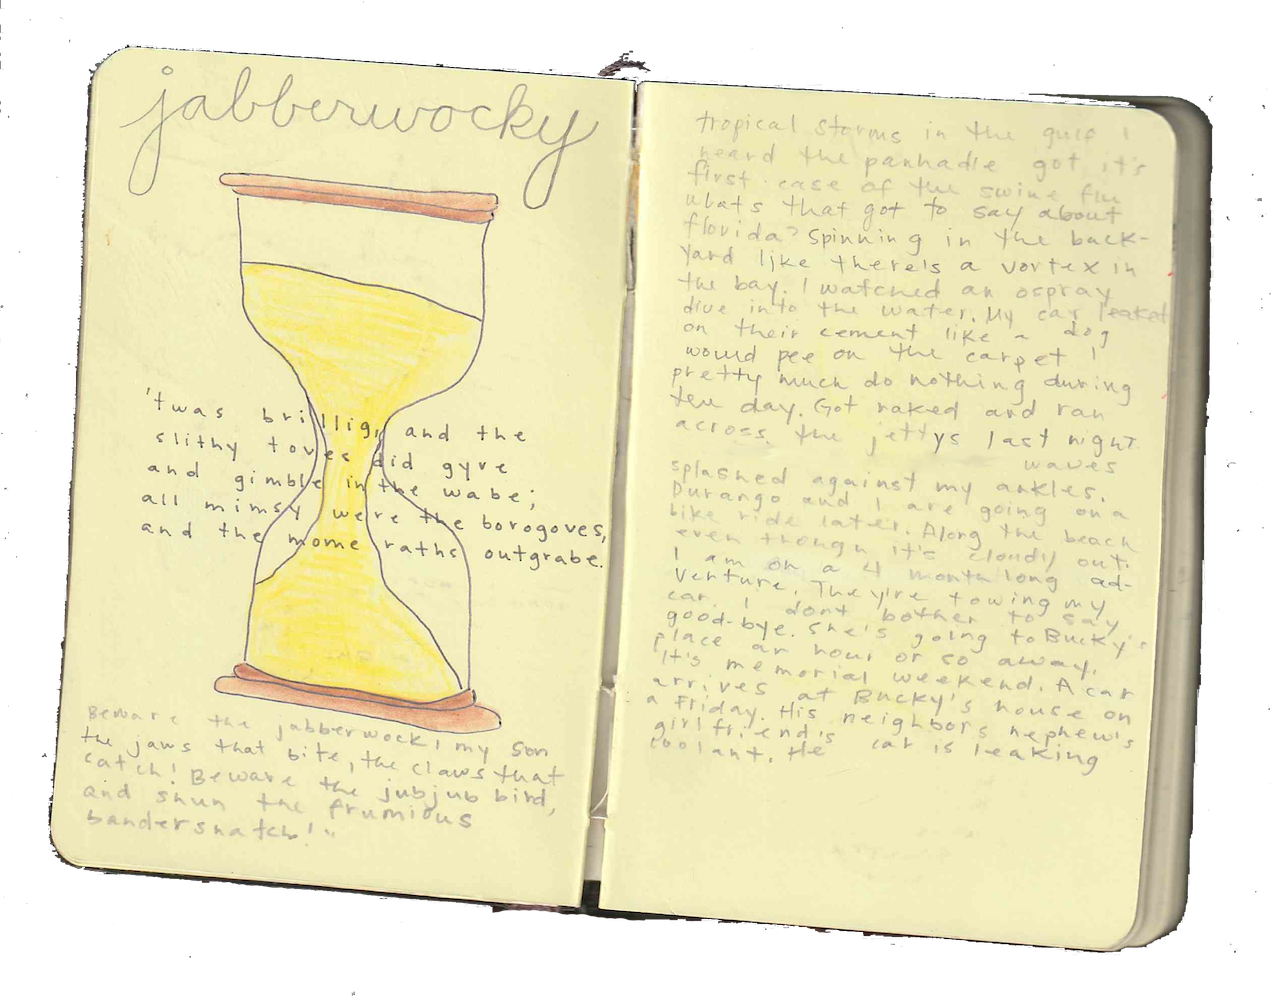 jabberwocky
'twas brillig, and the
slithy toves did gyre
and gimble in the wabe;
all mimsy were the borogoves,
and the mome raths outgrabe.
Beware the jabberwock, my son
the jaws that bite, the claws that
catch! Beware the jubjub bird,
and shun the frumious
bandersnatch!"
tropical storms in the gulf I
heard the panhadle got it's
first case of the swine flu
whats that got to say about
florida? Spinning in the back-
yard like there's a vortex in
the bay. I watched an ospray
dive into the water. My car leaked
on their cement like a dog
would pee on the carpet I
pretty much do nothing during
the day. Got naked and ran
across the jettys last night
waves
splashed against my ankles.
Durango and I are going on a
bike ride later. Along the beach
even though it's cloudy out.
I am on a 4 month long ad-
venture. They're towing my
car. I dont bother to say
good-bye. She's going to Bucky's
place an hour or so away.
It's memorial weekend. A car
arrives at Bucky's house on
a Friday. His neighbors nephew's
girlfriend's car is leaking
coolant. He